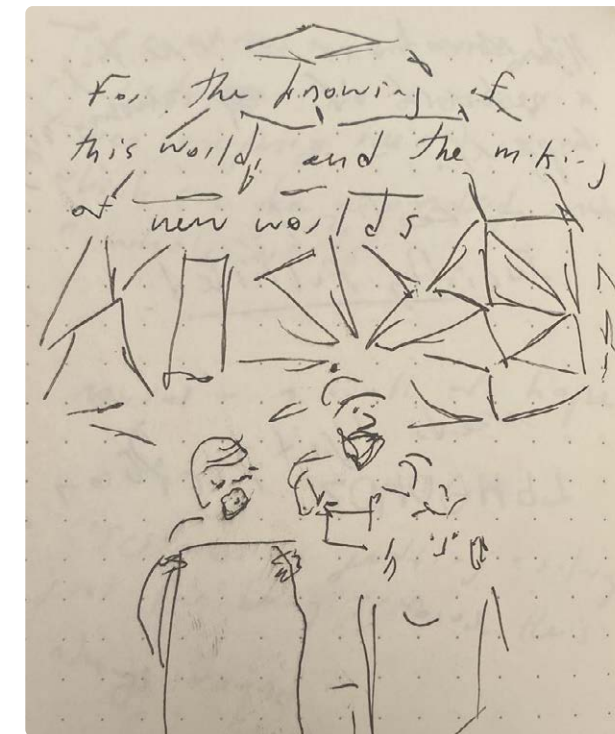 For the knowing of
this world, and the m.king
of new worlds